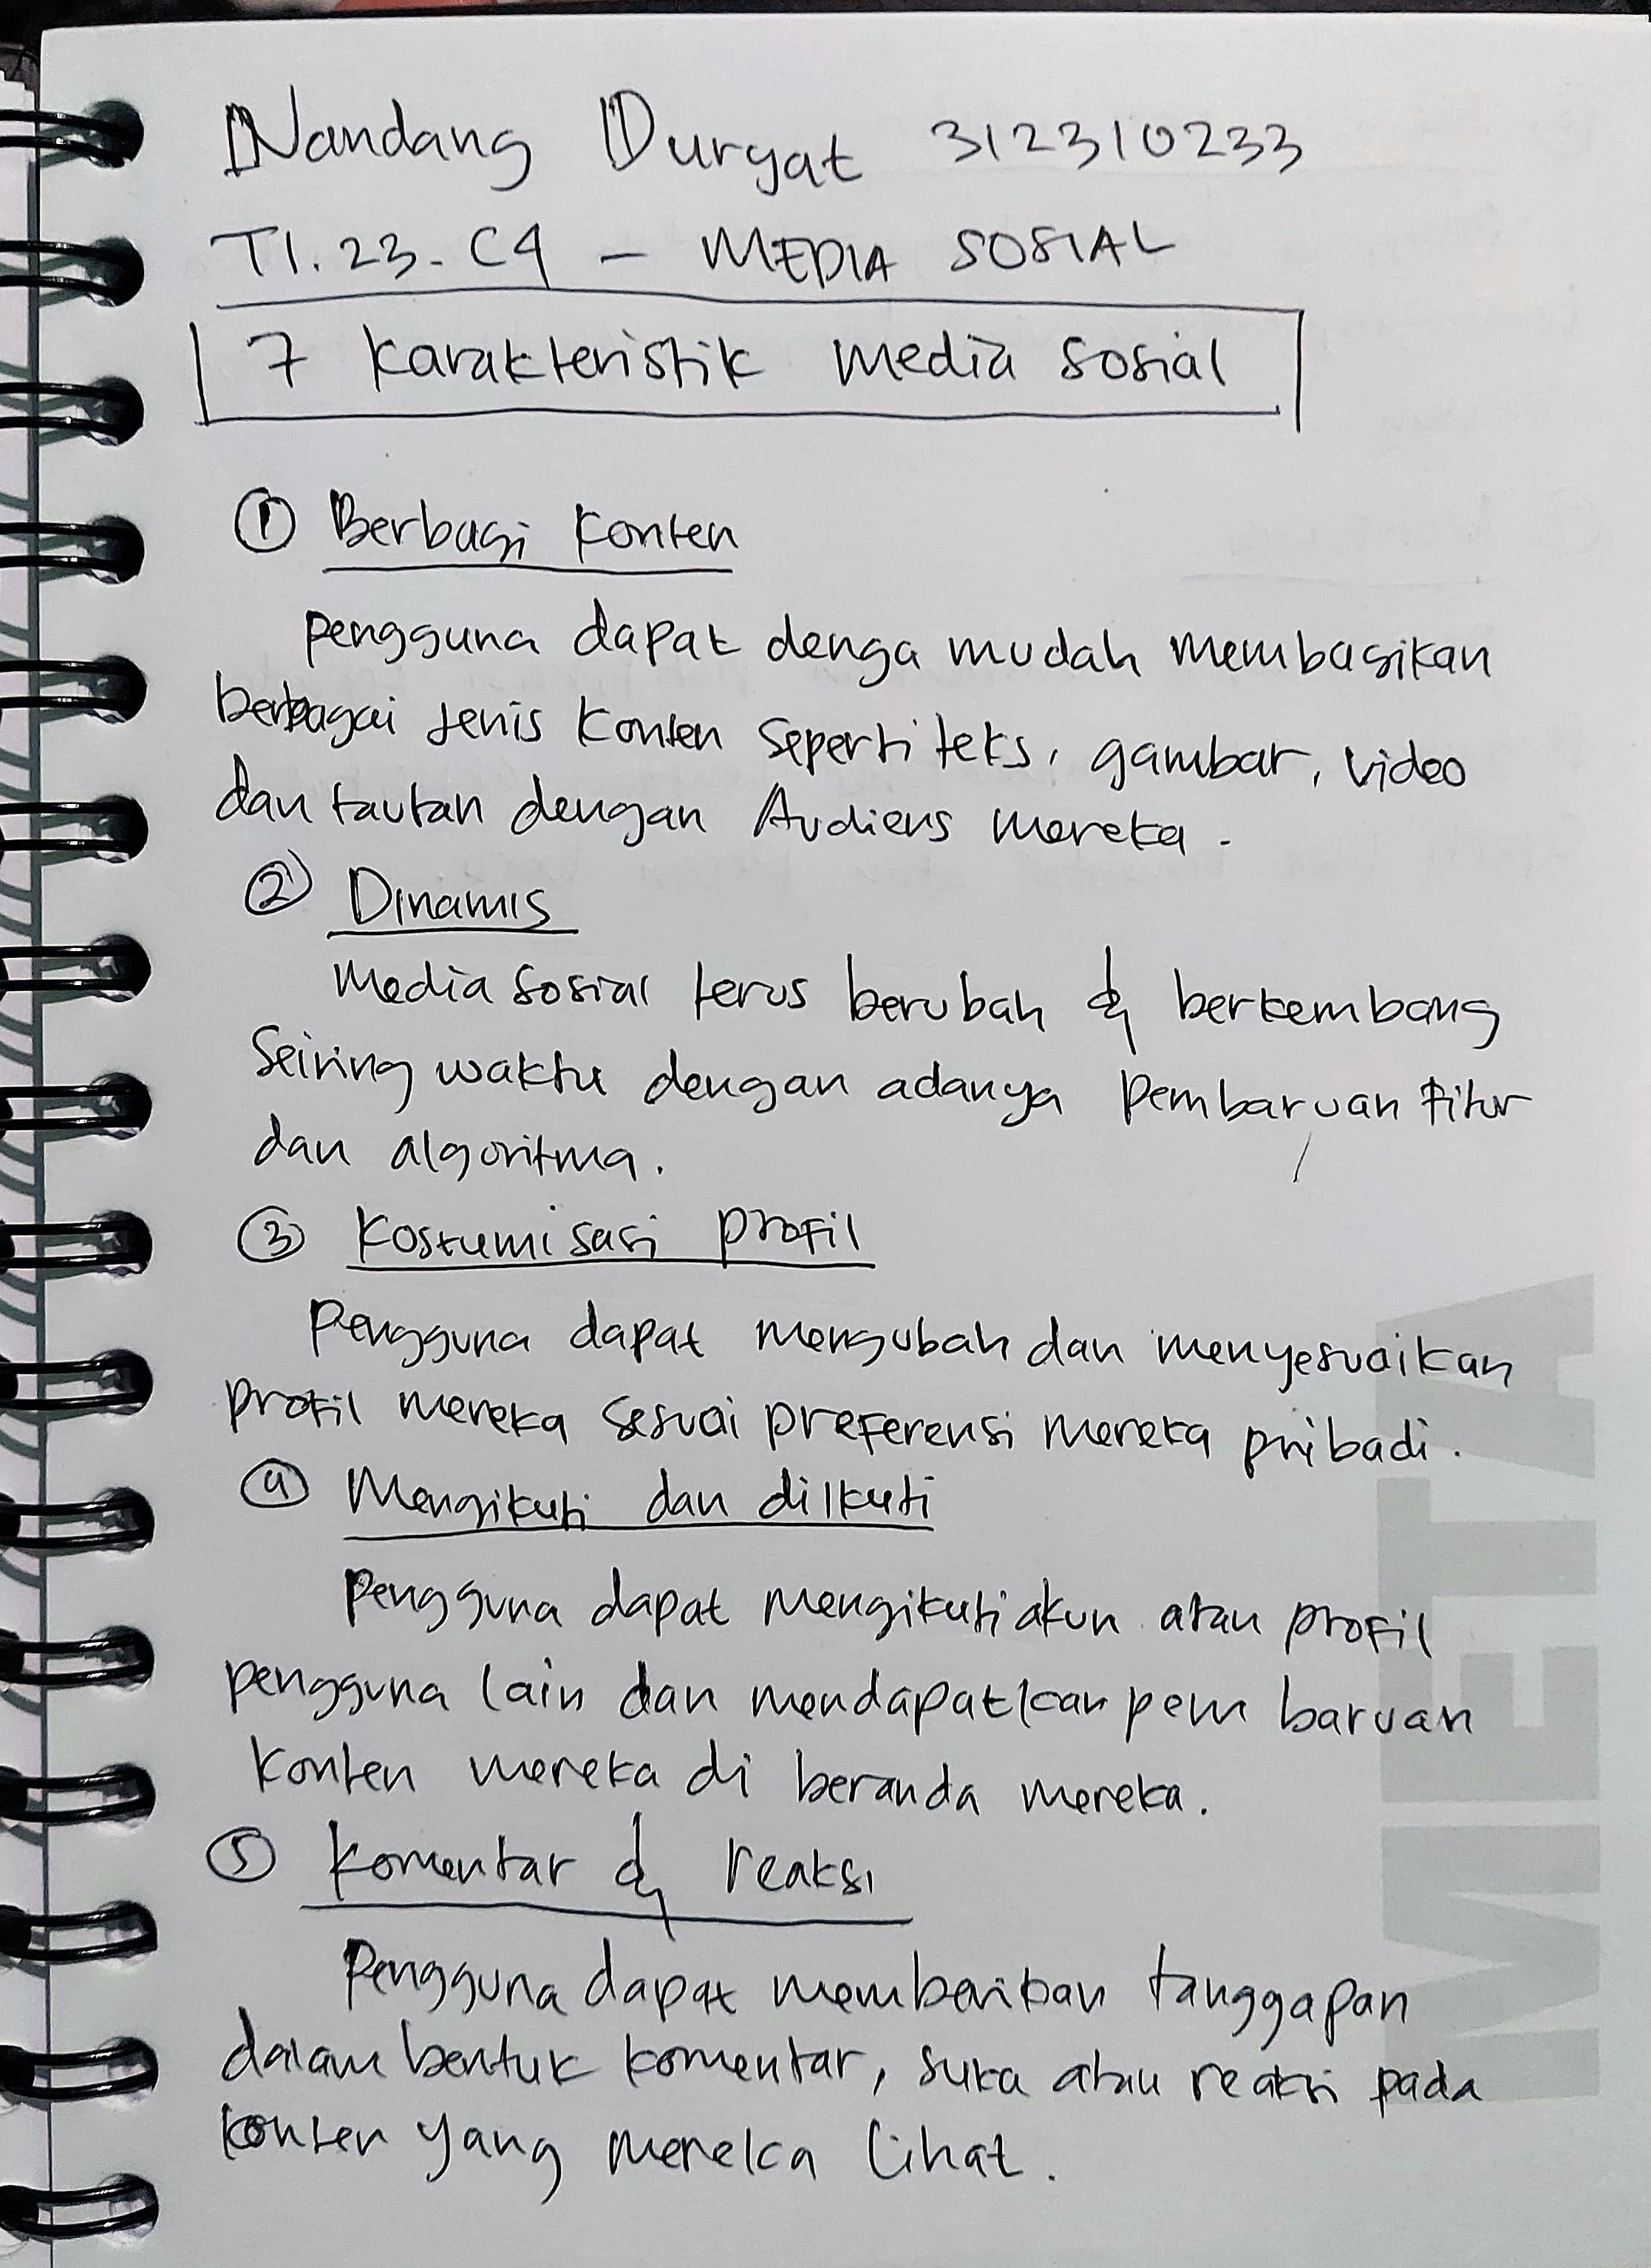 Nandang Duryat 312310233
TI.23.C4 - MEDIA SOSIAL
7 Karakteristik Media Sosial
① Berbagi Konten
Pengguna dapat denga mudah membagikan
berbagai jenis konten seperti teks, gambar, video
dan tautan dengan Audiens mereka.
② Dinamis
Media sosial terus berubah & berkembang
Seiring waktu dengan adanya pembaruan fitur
dan algoritma.
③ Kostumisasi profil
Pengguna dapat mengubah dan menyesuaikan
profil mereka sesuai preferensi mereka pribadi.
④ Mengikuti dan diIkuti
Pengguna dapat mengikuti akun atau profil
pengguna lain dan mendapatkan pembaruan
konten mereka di beranda mereka.
⑤ Komentar & reaksi
Pengguna dapat memberikan tanggapan
dalam bentuk komentar, suka atau reaksi pada
konten yang mereka lihat.
META